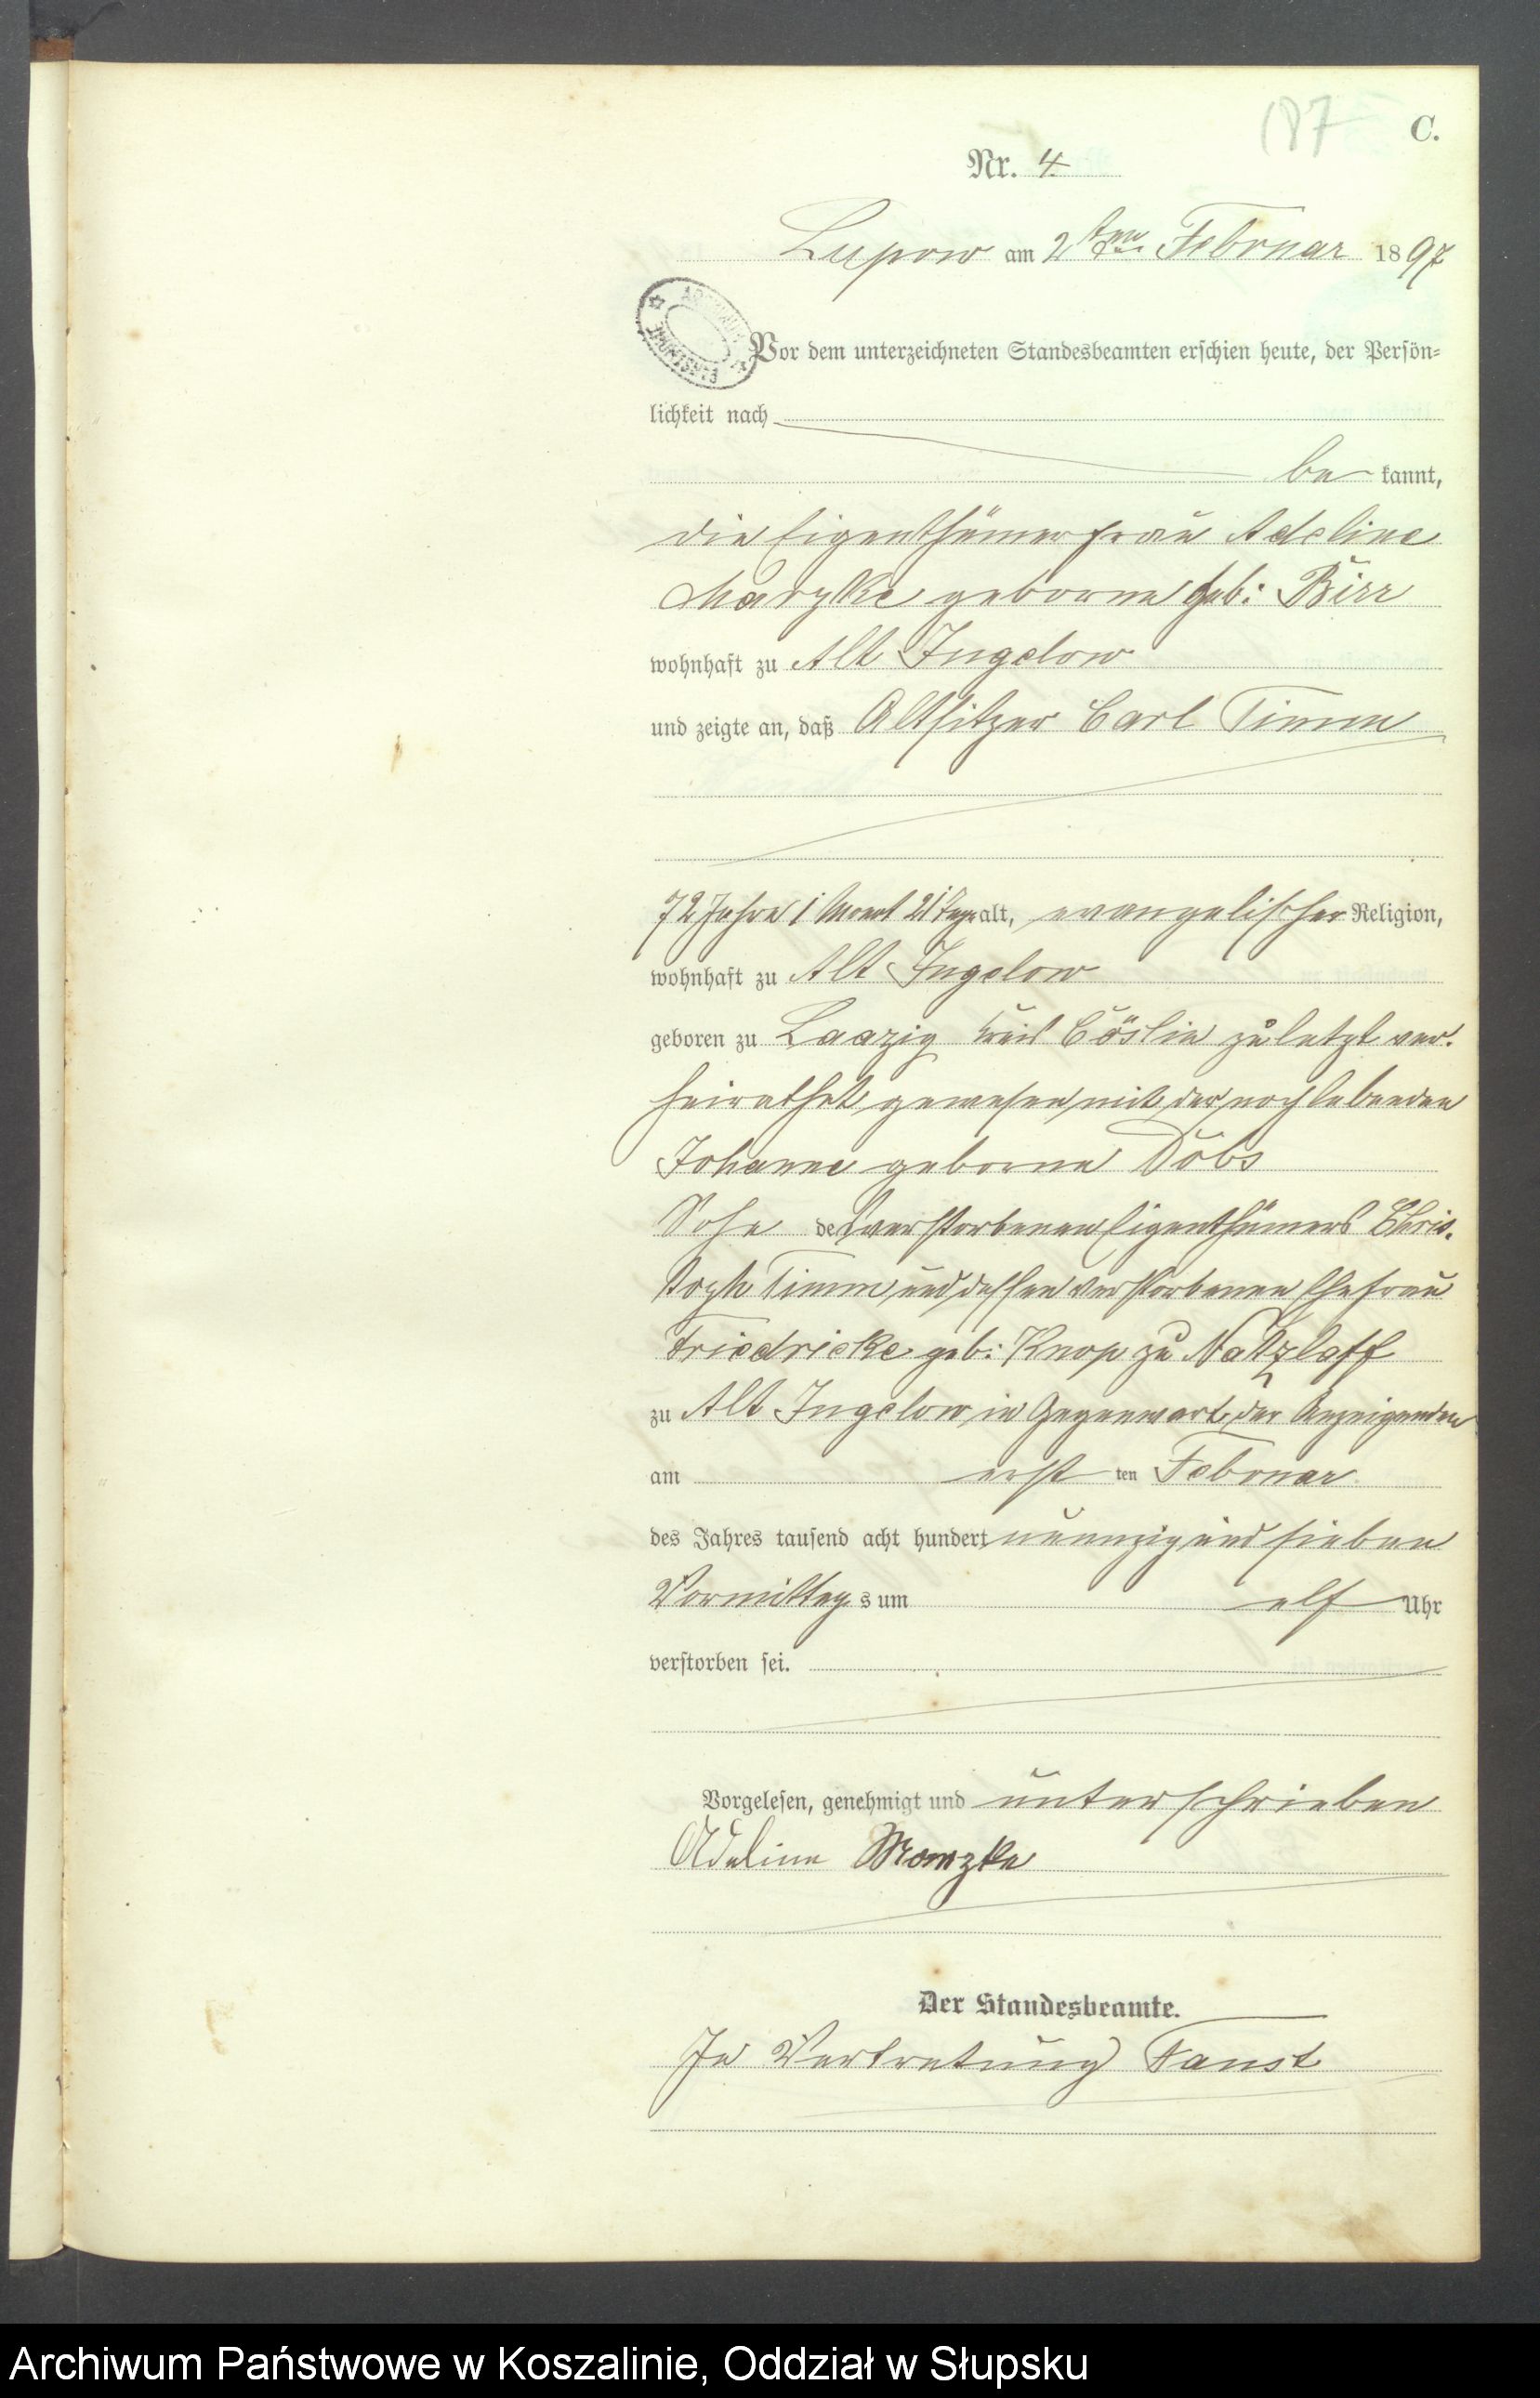 187
C.
Nr. 4
Lupow am 2ten Februar 1897
Vor dem unterzeichneten Standesbeamten erschien heute, der Persön-
lichkeit nach
be kannt,
die Eigenthümerfrau Adeline
Marzke geborne geb: Birr
wohnhaft zu Alt Jugelow
und zeigte an, daß Altsitzer Carl Timm
72 Jahre 1 Monat 21 Tage alt, evangelischer Religion,
wohnhaft zu Alt Jugelow
geboren zu Laazig Kreis Cöslin zuletzt ver-
heirathet gewesen mit der noch lebenden
Johanne geborne Döbs
Sohn des verstorbenen Eigenthümers Chris-
toph Timm und dessen verstorbenen Ehefrau
Friedricke geb: Knop zu Natzlaff
zu Alt Jugelow in Gegenwart der Anzeigenden
am erst ten Februar
des Jahres tausend acht hundert neunzig und sieben
Vormittag s um elf Uhr
verstorben sei.
Vorgelesen, genehmigt und unterschrieben
Adeline Marzke
Der Standesbeamte.
In Vertretung Faust
Archiwum Państwowe w Koszalinie, Oddział w Słupsku